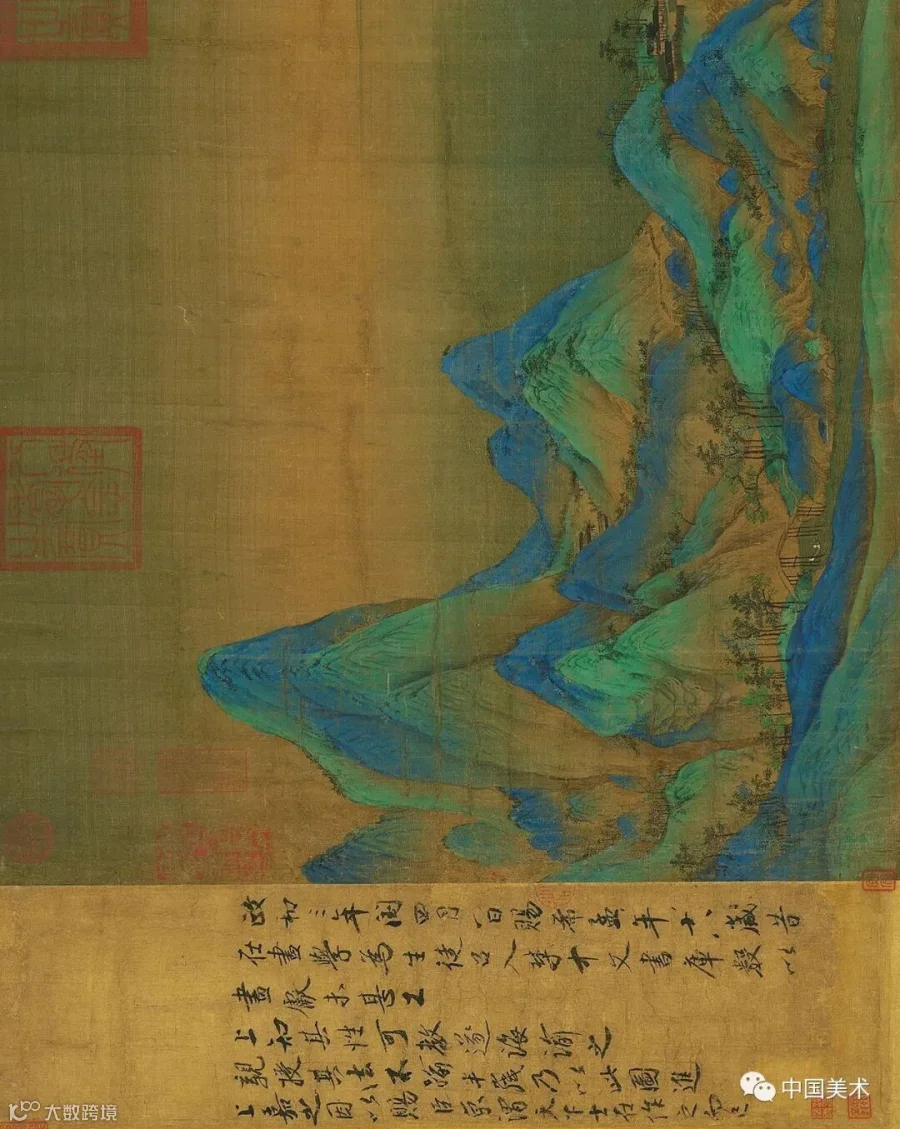 政和三年閏四月八日賜希孟年十八歲昔
在畫學為生徒召入禁中文書庫數以
畫獻未甚工
上知其性可教遂誨諭之
親授其法不踰半歲乃以此圖進
上嘉之因以賜臣京謂天下士在作之而已
中国美术
大数跨境